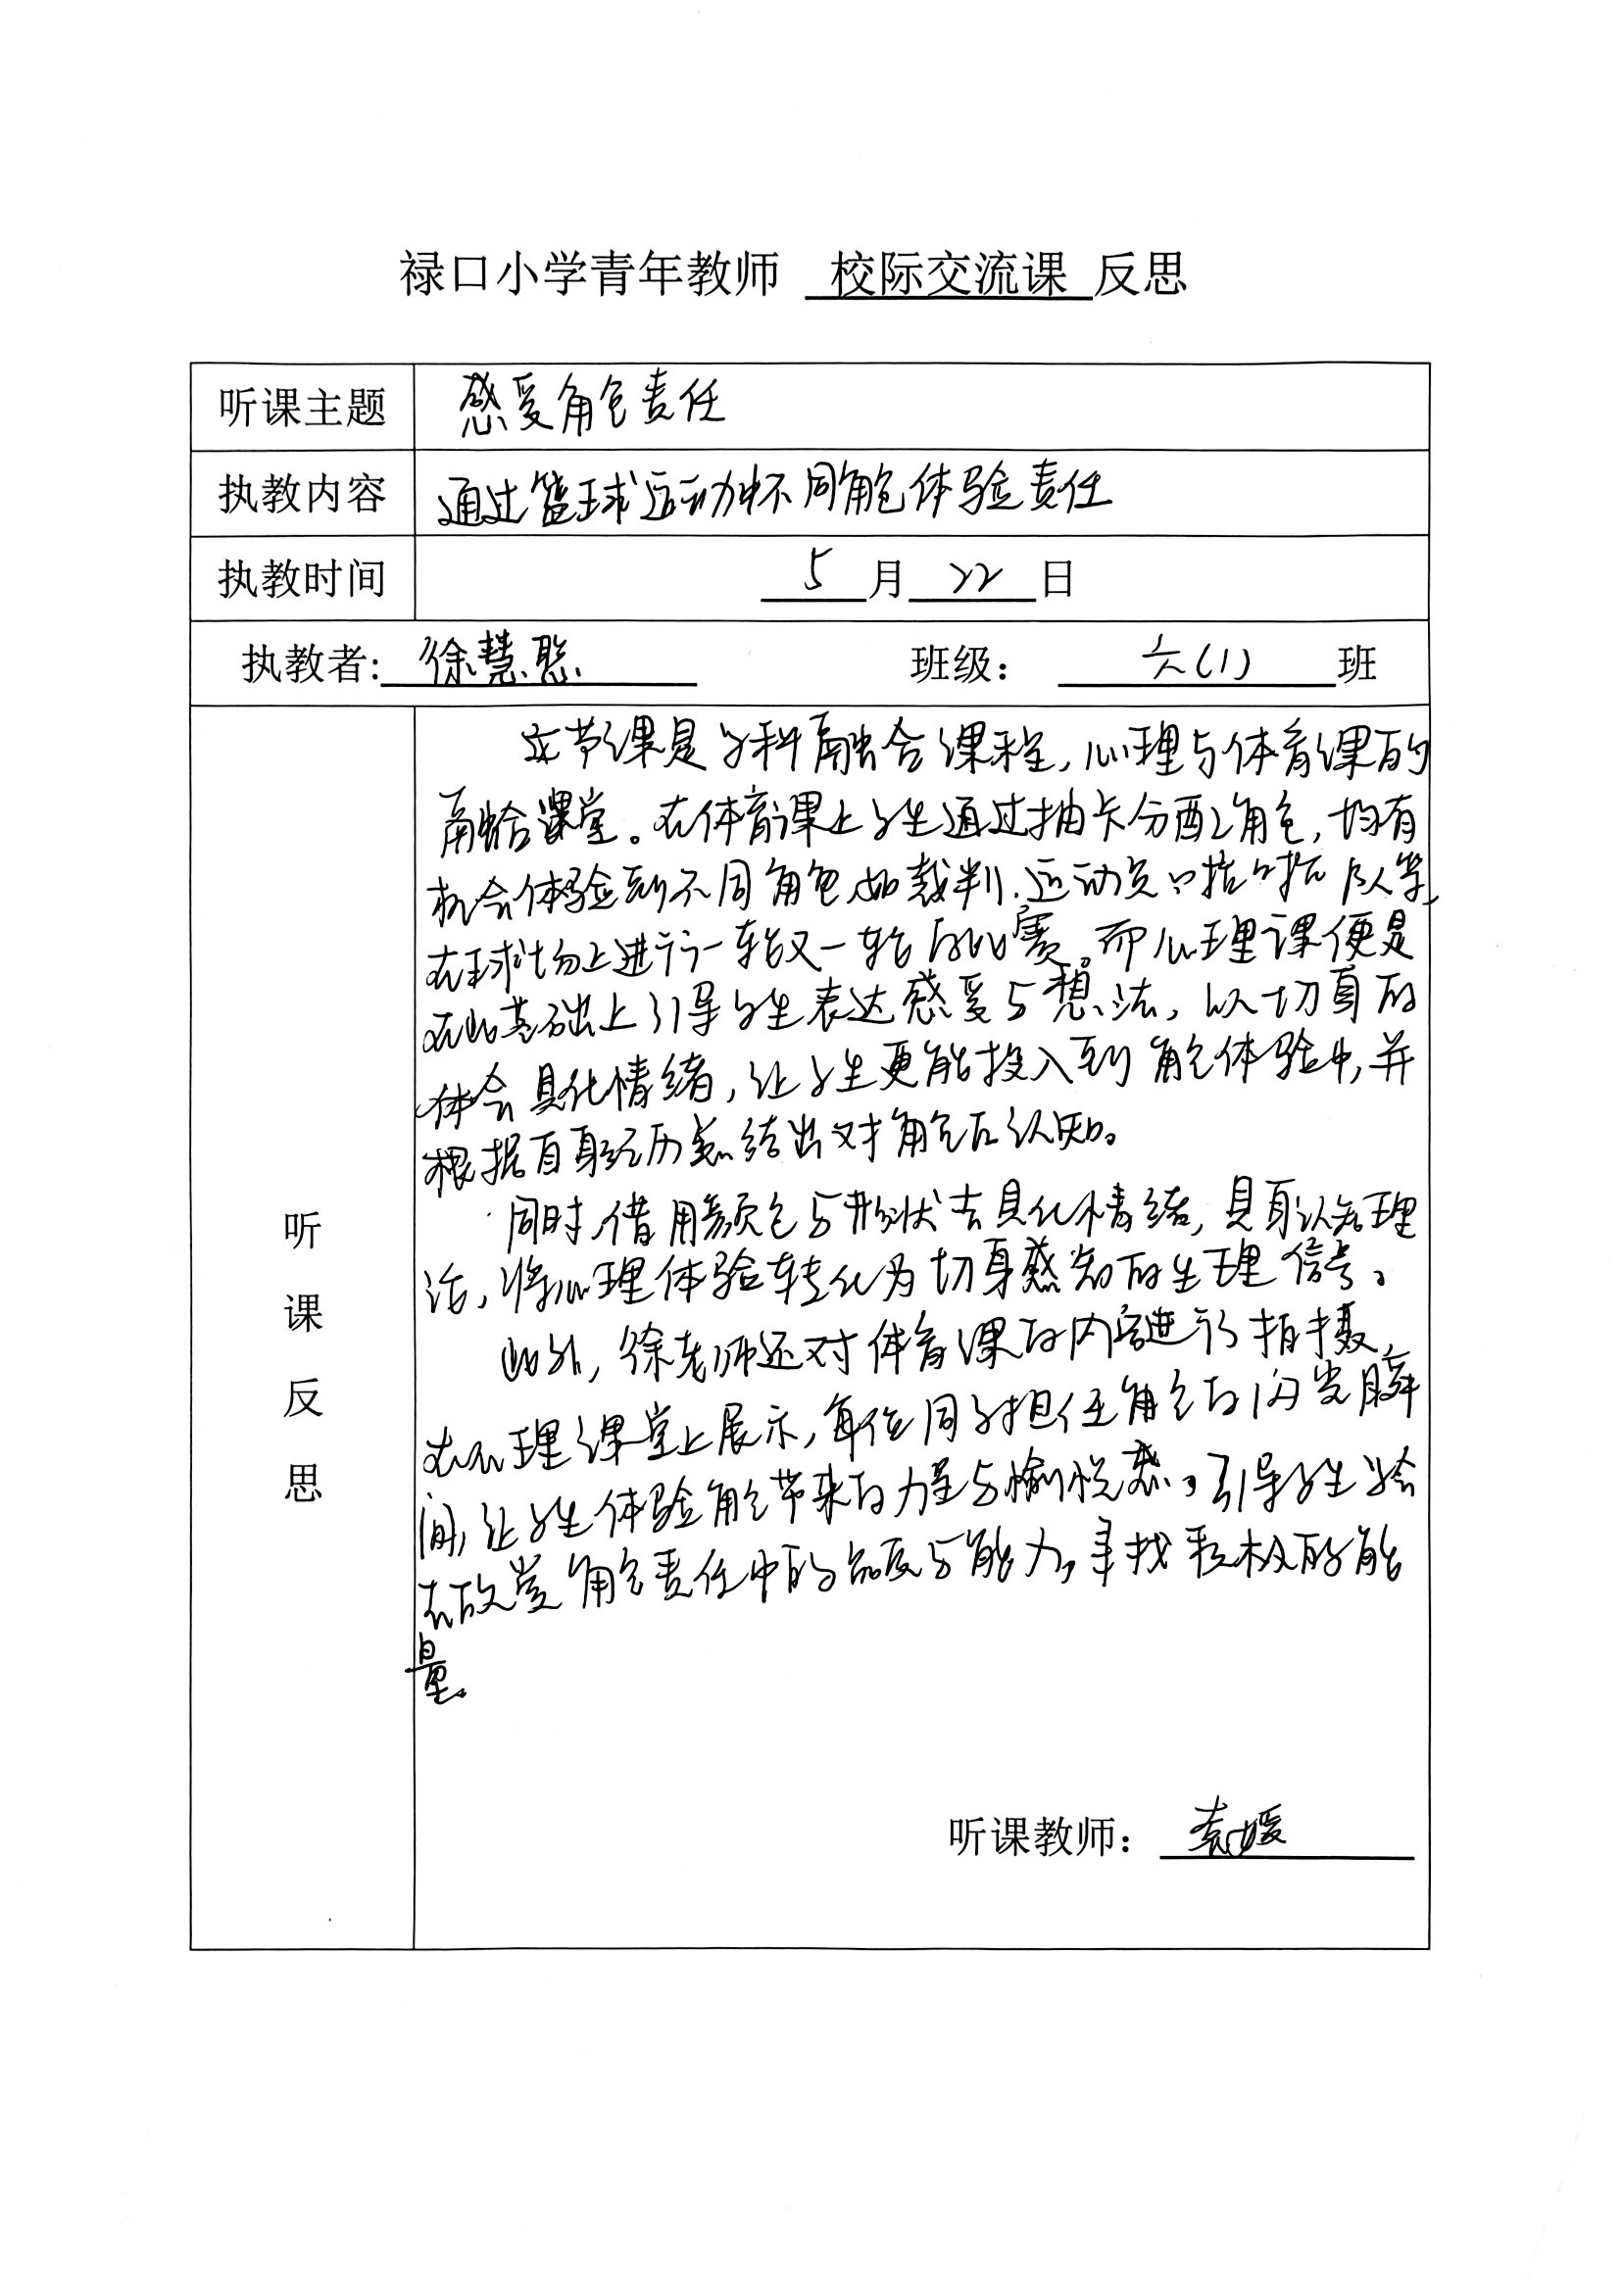 禄口小学青年教师 校际交流课 反思
听课主题 感受角色责任
执教内容 通过篮球运动中不同角色体验责任
执教时间 5月22日
执教者: 徐慧聪 班级: 六(1)班
听课反思
这节课是学科融合课程,心理与体育课的
融合课堂。在体育课上学生通过抽卡分配角色,均有
机会体验到不同角色,如裁判、运动员、啦啦队等,
在球场上进行一轮又一轮的比赛。而心理课便是
在此基础上引导学生表达感受与想法,以切身的
体会具化情绪,让学生更能投入到角色体验中,并
根据自身经历总结出对角色的认知。
同时,借用颜色与形状去具化情绪,具身认知理
论,将心理体验转化为切身感知的生理信号。
此外,徐老师还对体育课的内容进行拍摄,
在心理课堂上展示,每位同学担任角色的闪光瞬
间,让学生体验角色带来的力量与愉悦感。引导学生学会
去欣赏角色责任中的品质与能力,寻找积极的能
量。
听课教师: 袁媛